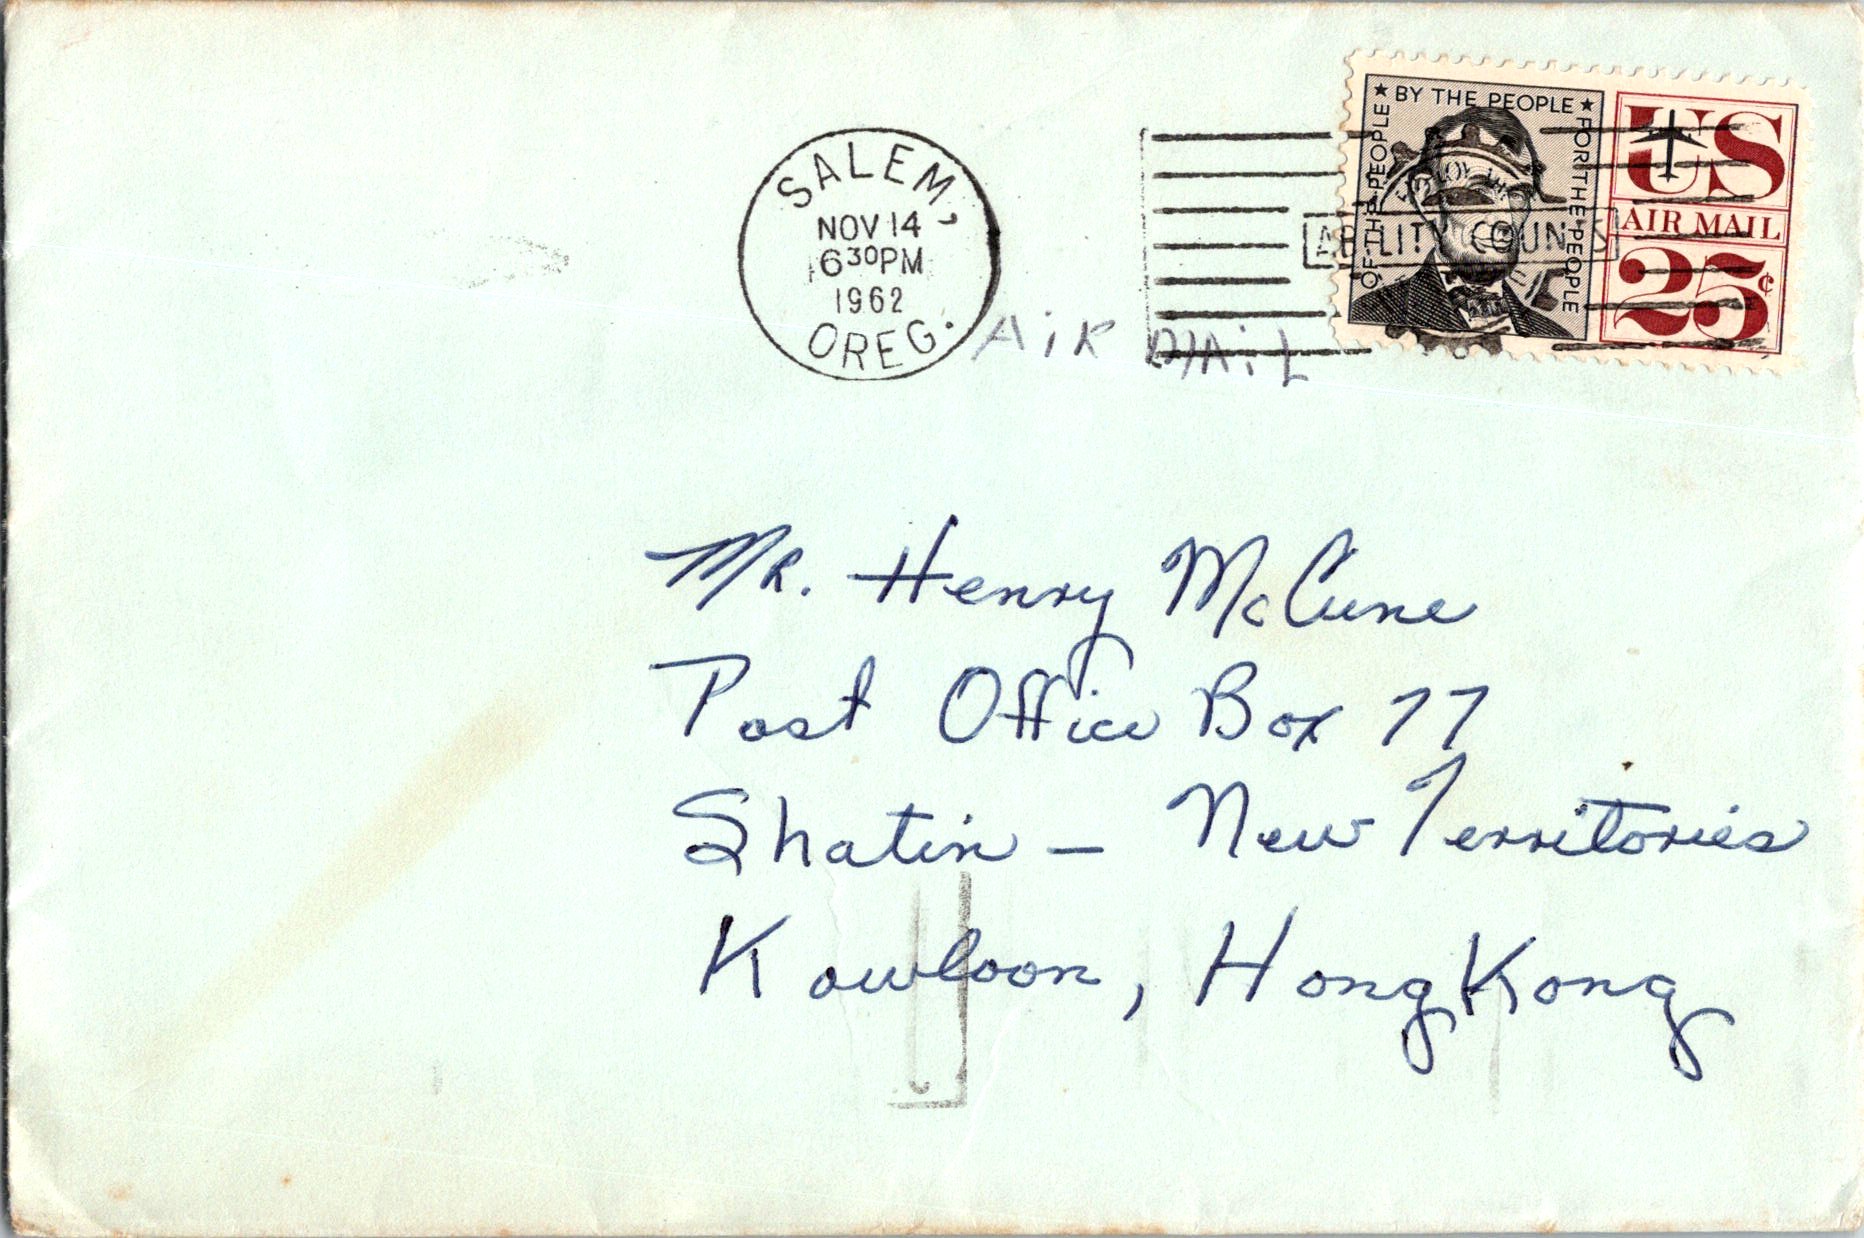 SALEM,
NOV 14
6 30 PM
1962
OREG.
AiR MAiL
ABILITY COUNTS
OF·THE·PEOPLE ★ BY THE PEOPLE ★ FOR·THE·PEOPLE
US
AIR MAIL
25¢
MR. Henry McCune
Post Office Box 77
Shatin – New Territories
Kowloon, Hong Kong